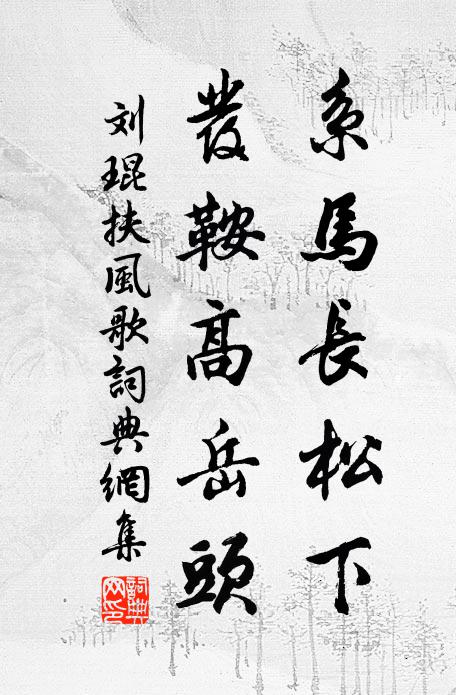 系馬長松下
發鞍高岳頭
刘琨扶風歌詞典網集
詞典